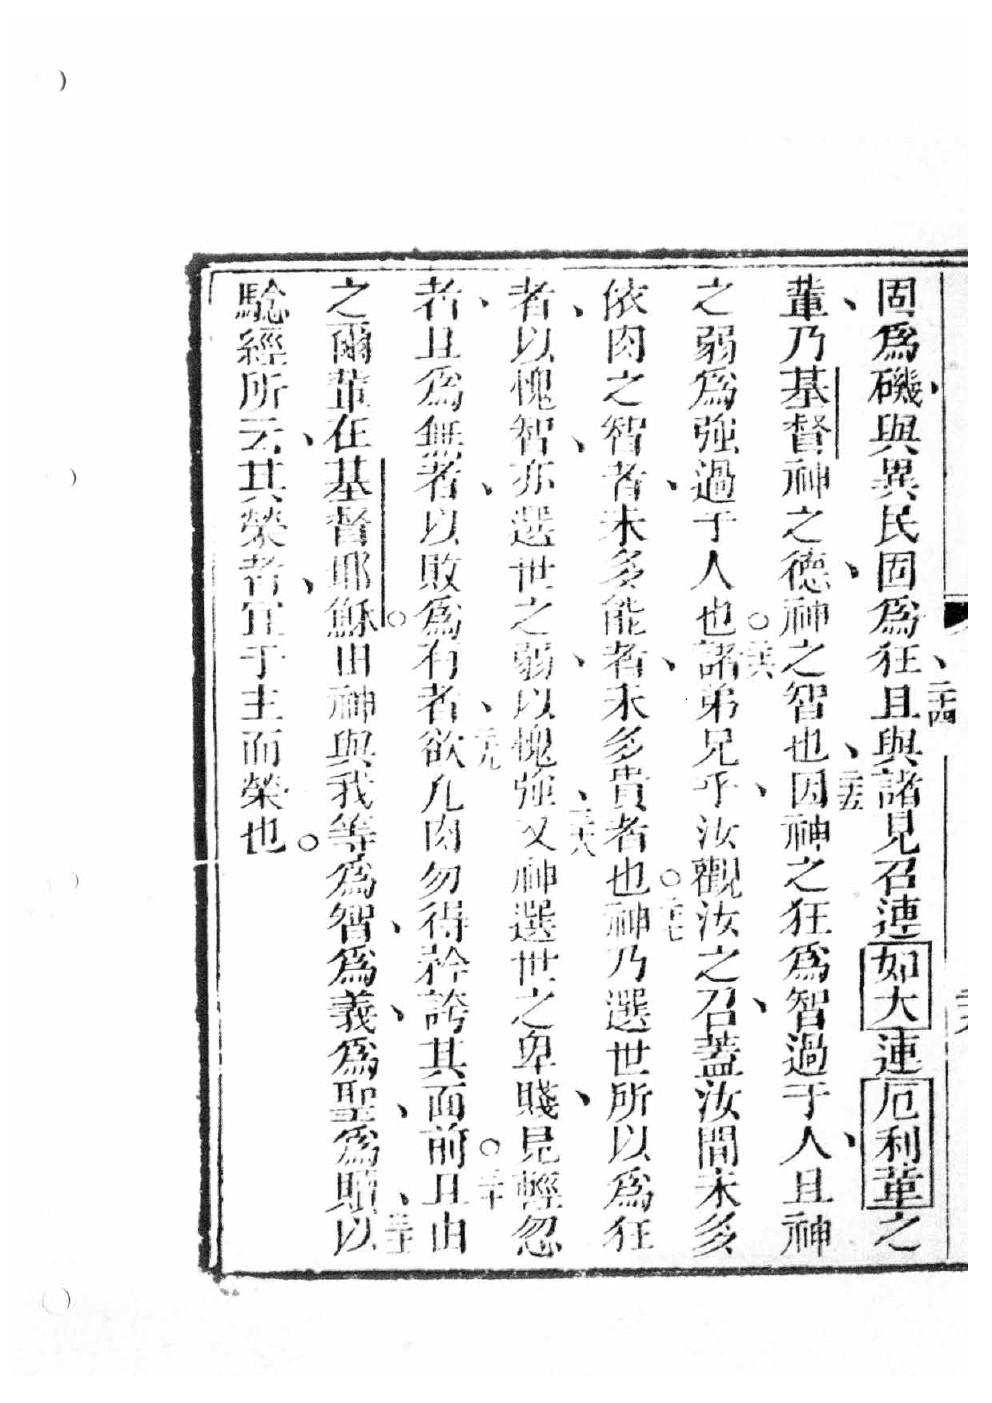 固爲磯與異民固爲狂二十四且與諸見召連如大連厄利輩之
輩乃基督神之德神之智也二十五因神之狂爲智過于人且神
之弱爲強過于人也○二十六諸弟兄乎汝觀汝之召蓋汝間未多
依肉之智者未多能者未多貴者也○二十七神乃選世所以爲狂
者以愧智亦選世之弱以愧強二十八又神選世之卑賤見輕忽
者且爲無者以敗爲有者二十九欲凡肉勿得矜誇其面前○三十且由
之爾輩在基督耶穌○由神與我等爲智爲義爲聖爲贖三十一以
騐經所云其榮者宜于主而榮也○